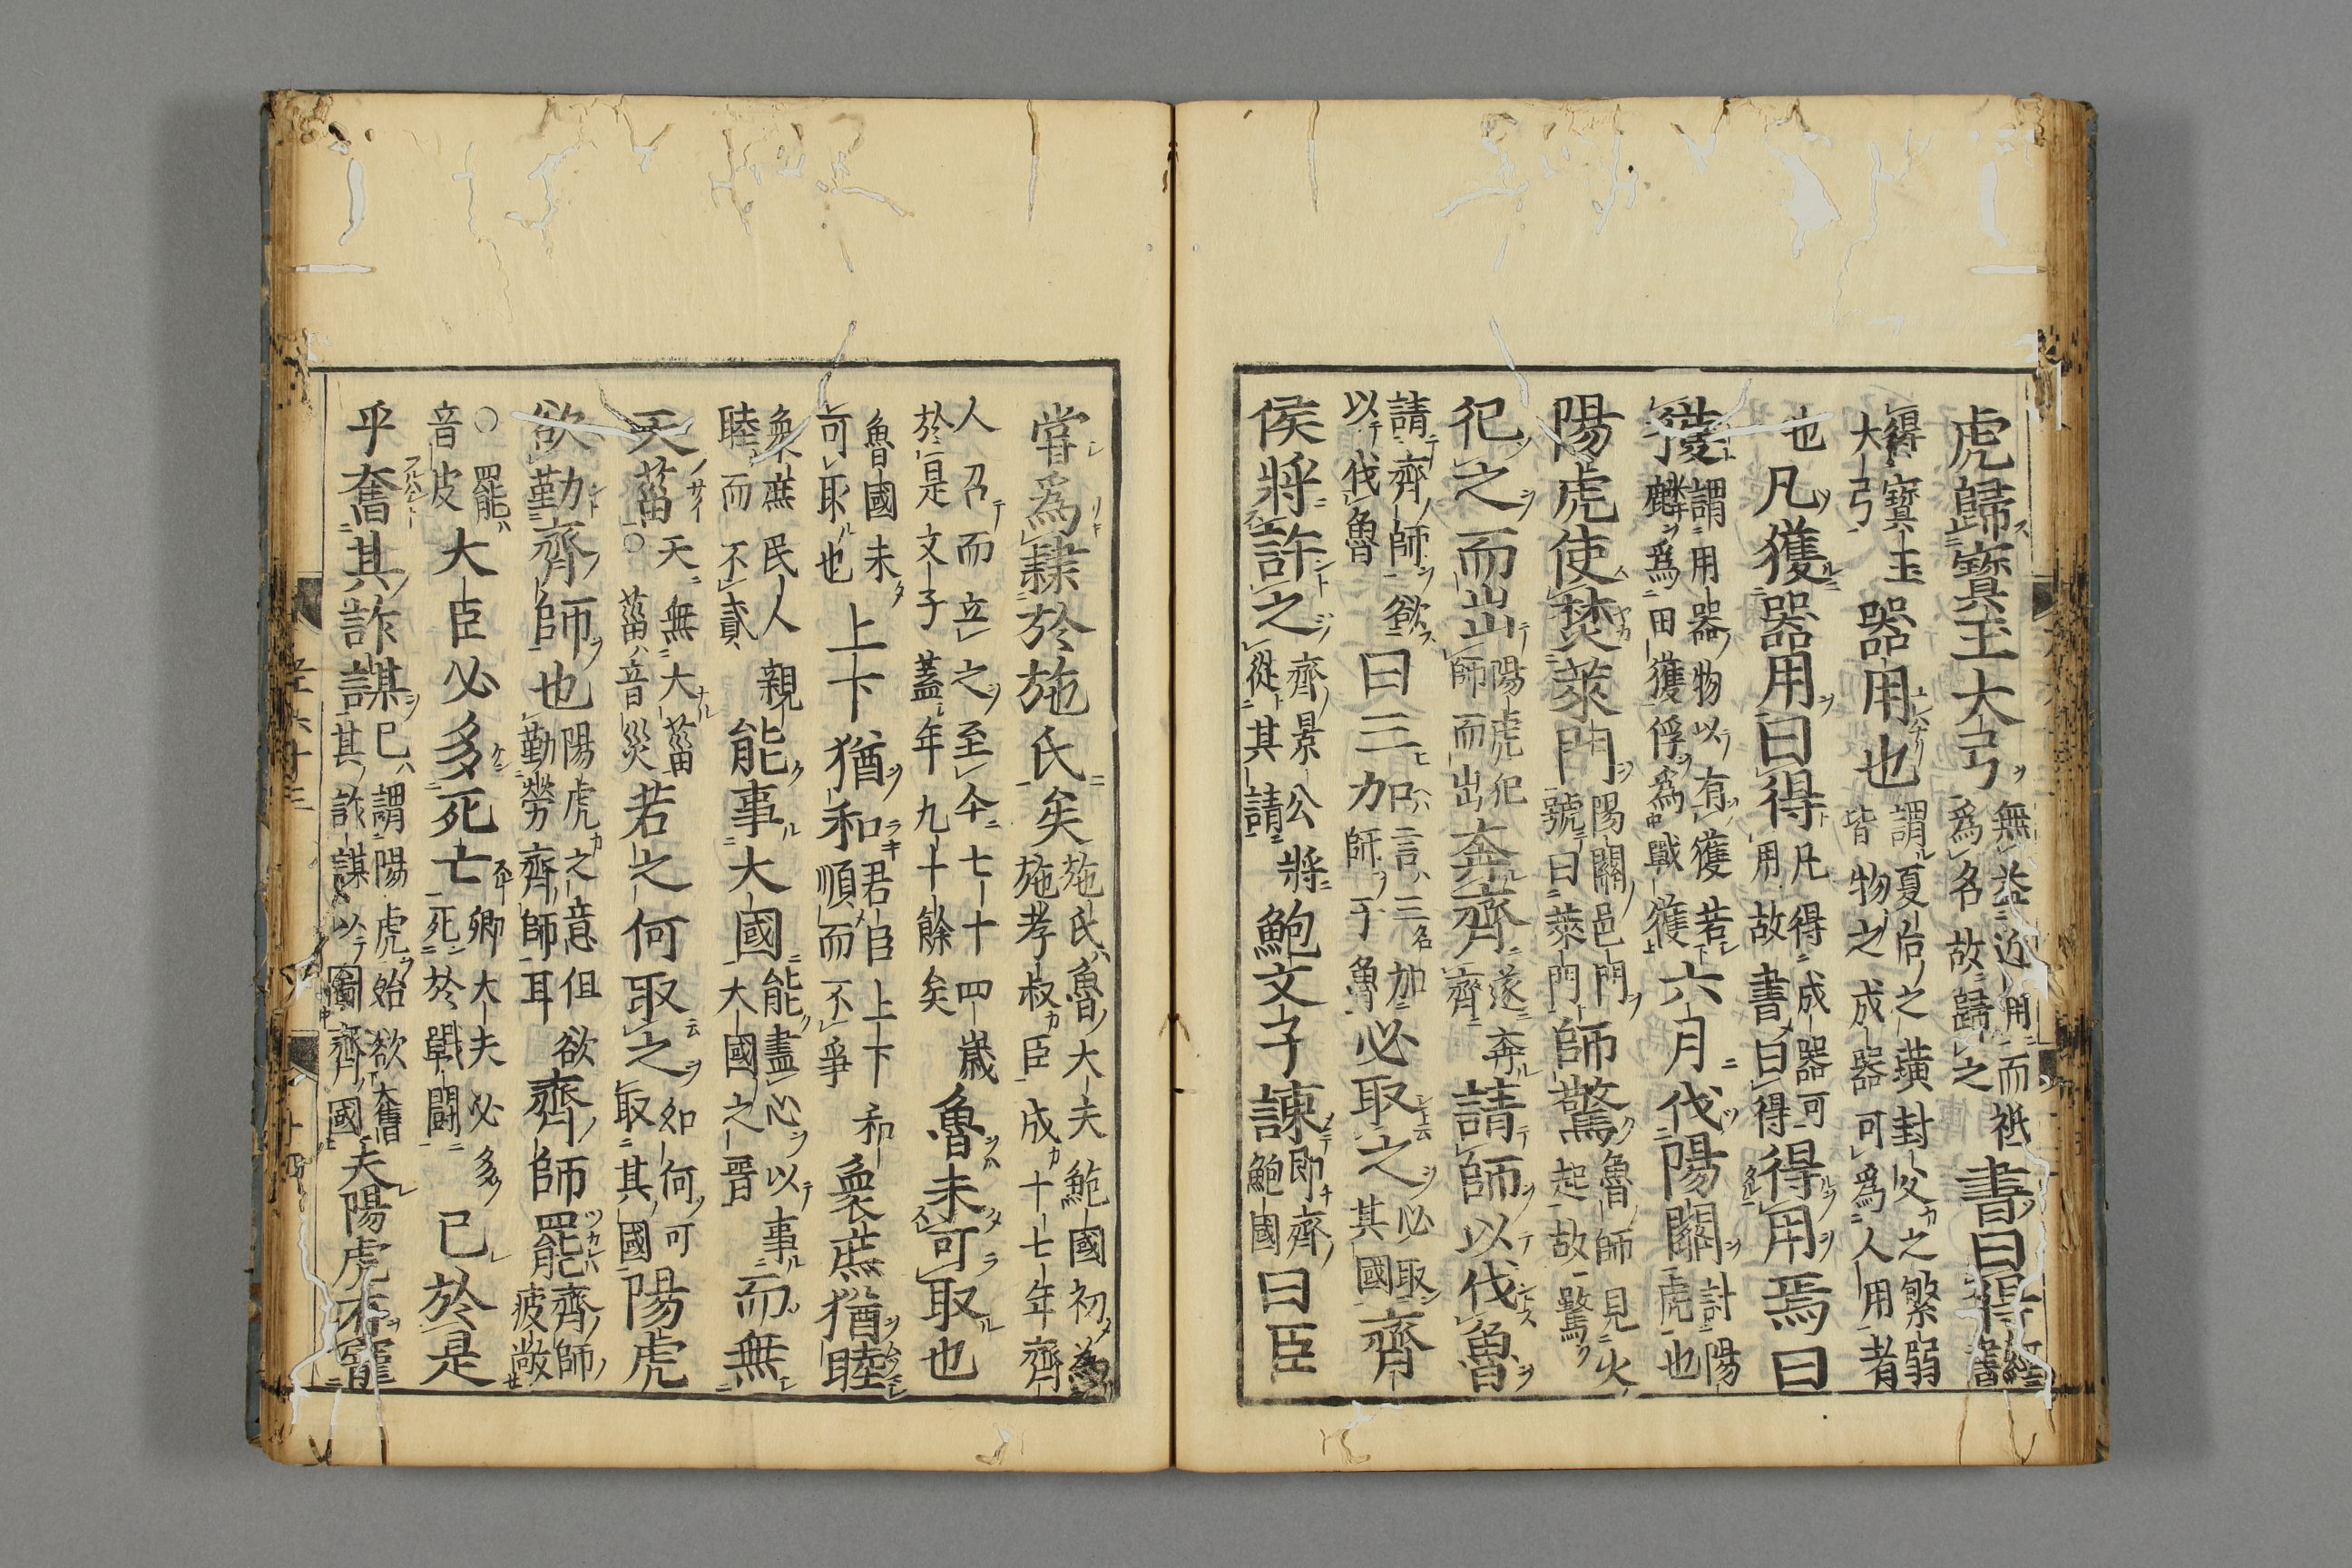 虎歸寶玉大弓無益近用而祇爲名故歸之書曰得經書
得寶玉大弓器用也謂夏后之璜封父之繁弱皆物之成器可爲人用者
也凡獲器用曰得凡得成器可用故書曰得得用焉曰
獲謂用器物以有獲若麟爲田獲俘爲戰獲六月伐陽關討陽虎也
陽虎使焚萊門陽關邑門號曰萊門師驚魯師見火起故驚
犯之而出陽虎犯師而出奔齊遂奔齊請師以伐魯
請齊師欲以伐魯曰三加言三加師于魯必取之必取其國齊
侯將許之齊景公將從其請鮑文子諫即齊鮑國曰臣
嘗爲隸於施氏矣施氏魯大夫鮑國初爲施孝叔臣成十七年齊
人召而立之至今七十四歲於是文子蓋年九十餘矣魯未可取也
魯國未可取也上下猶和君臣上下和順而不爭衆庶猶睦
衆庶民人親睦而不貳能事大國能盡心以事大國之晋而無
天菑天無大菑○菑音災若之何取之如何可取其國陽虎
欲勤齊師也陽虎之意但欲勤勞齊師耳齊師罷齊師疲敝
○罷音皮大臣必多死亡卿大夫必多死於戰鬪已於是
乎奮其詐謀已謂陽虎始欲奮其詐謀以圖齊國夫陽虎有寵